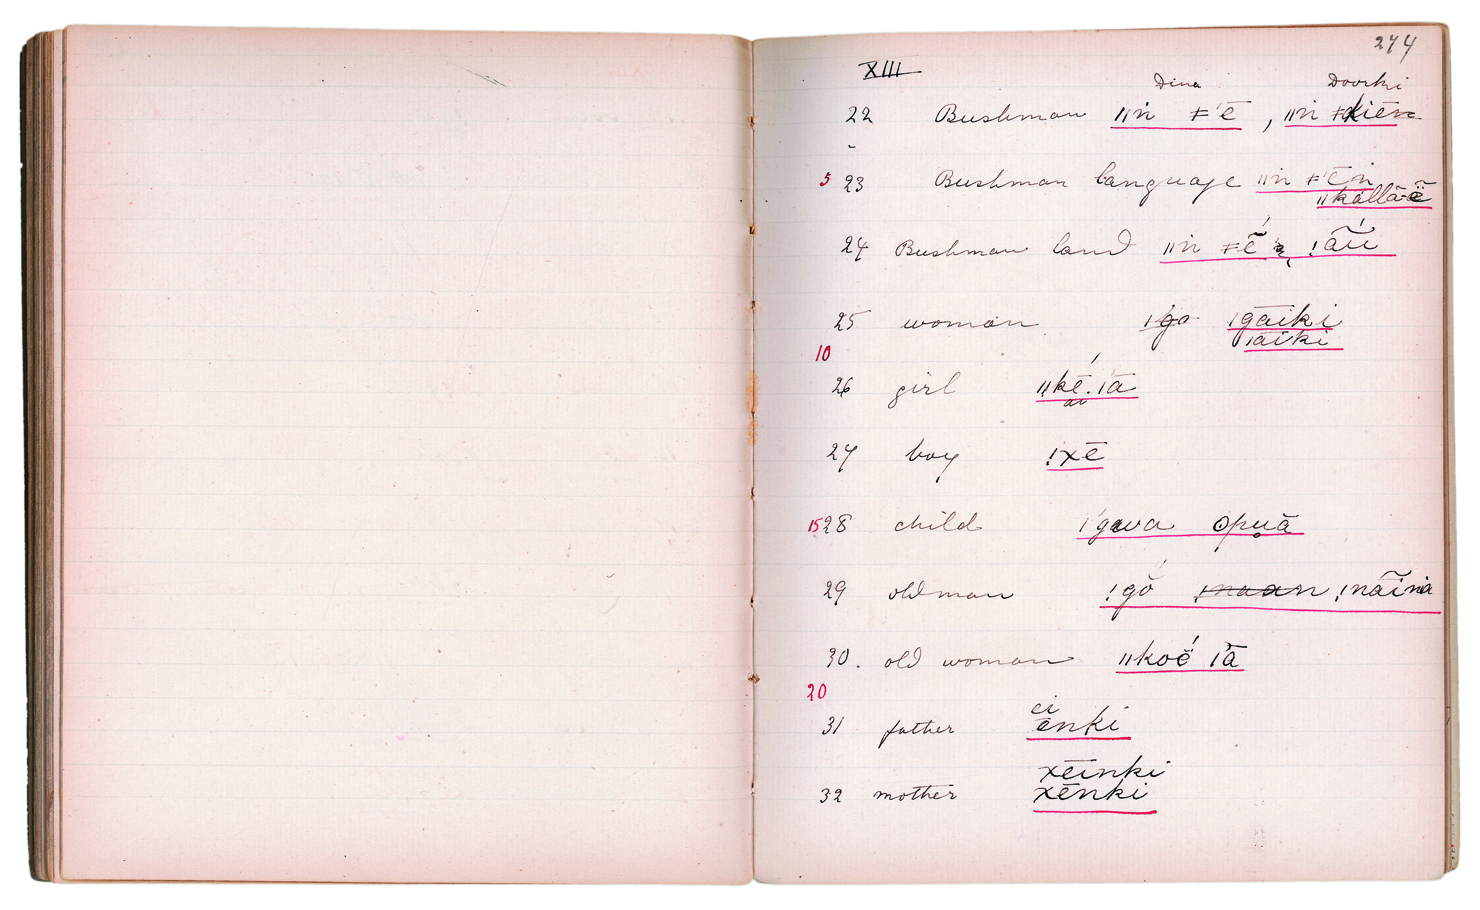 274
XIII
Dina Doorki
22 Bushman ǁṅ ǂ'ē , ǁṅ ǂkiēn
5 23 Bushman language ǁṅ ǂ'ēṅ
ǁkallā-ë̃
24 Bushman land ǁṅ ǂḗ !ãū́
25 woman ǀ'go ǀgāiki
ǀāiki
10
26 girl ǁkē. ǀ'ā
ai
27 boy !xē
15 28 child ǀ'gava ʘpu̥ā
29 old man !gŏ́ !naan !nãina
30. old woman ǁkoĕ́ ǀ'ā
20
ei
31 father ēnki
xēinki
32 mother xēnki